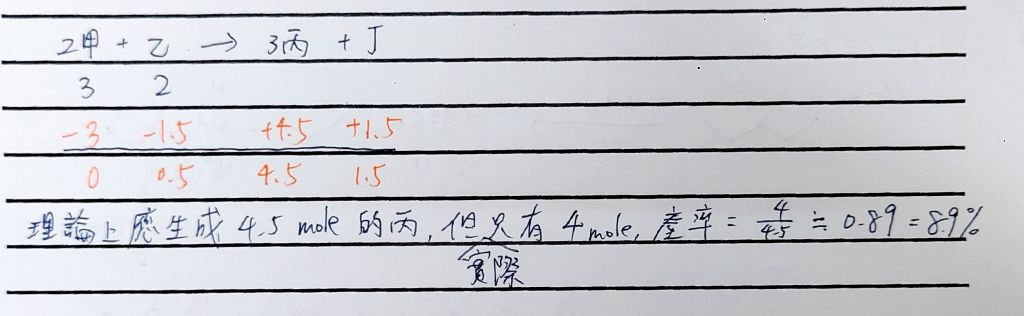 2甲 + 乙 → 3丙 + 丁
3 2
-3 -1.5 +4.5 +1.5
0 0.5 4.5 1.5
理論上應生成 4.5 mole 的丙, 但只有 4 mole, 產率 = 4/4.5 ≒ 0.89 = 89%
實際